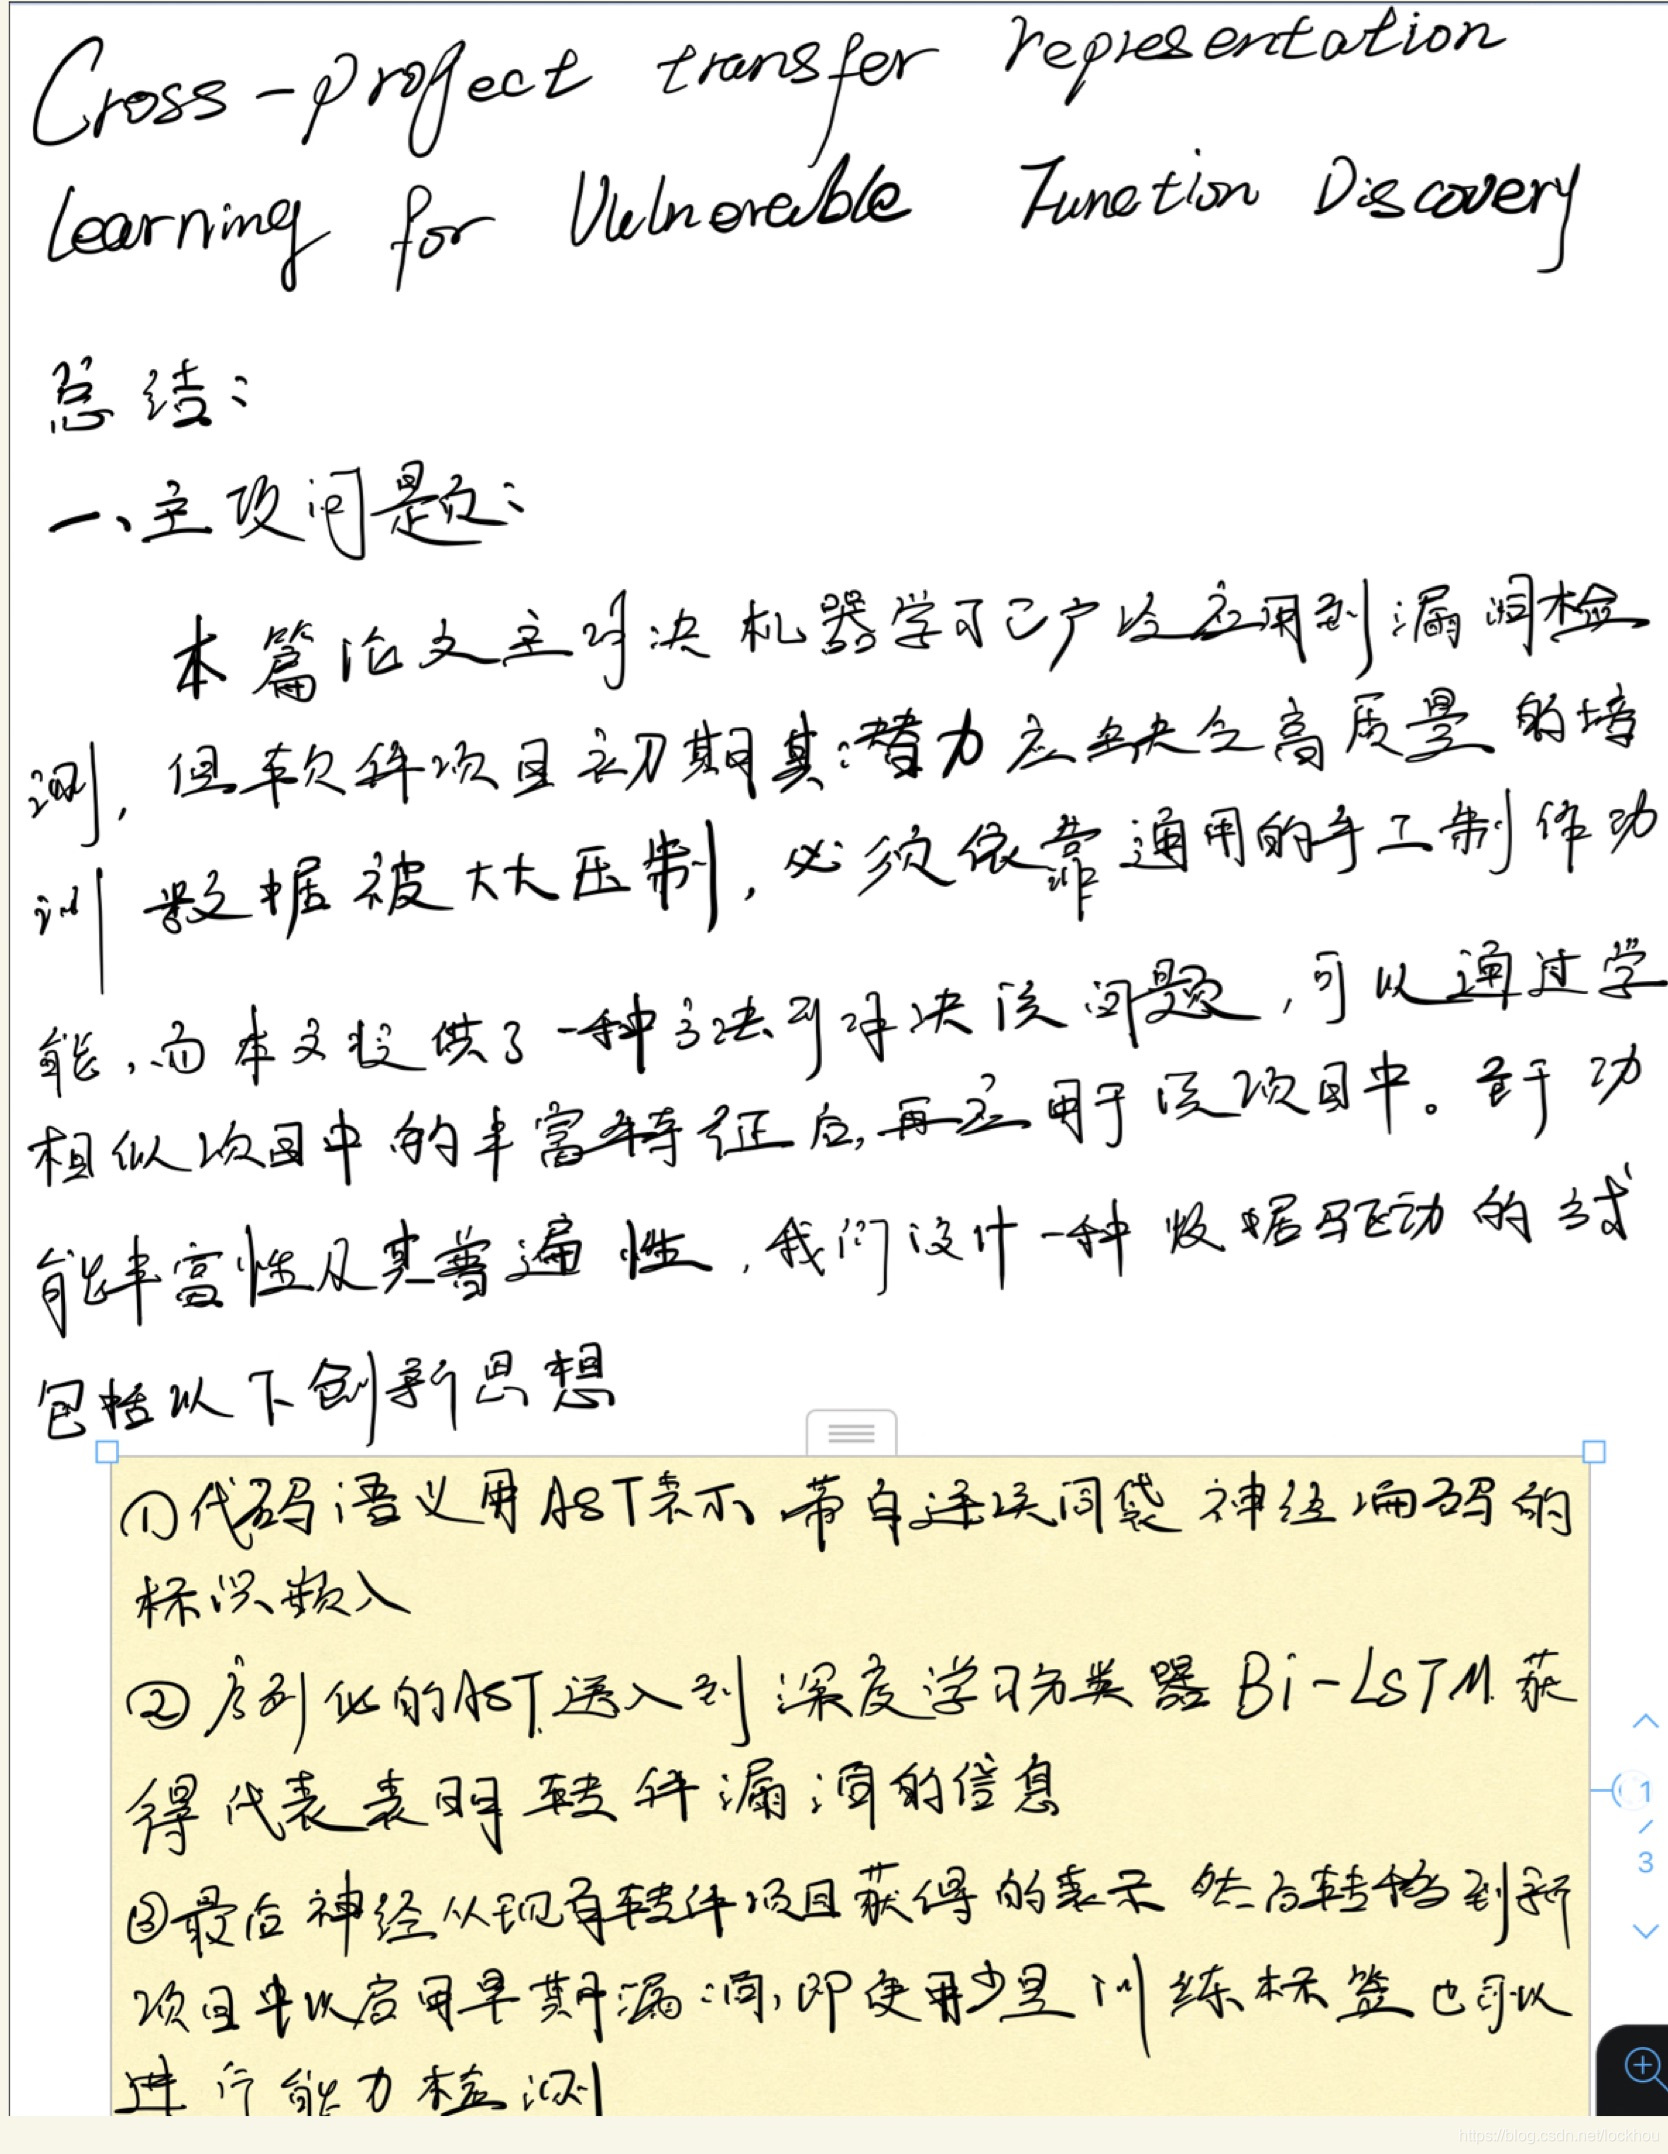 Cross-project transfer representation
learning for Vulnerable Function Discovery
总结:
一、主攻问题:
本篇论文主解决机器学习已广泛应用到漏洞检
测,但软件项目初期其潜力应缺乏高质量的培
训数据被大大压制,必须依靠通用的手工制作功
能,而本文提供了一种方法到解决该问题,可以通过学
相似项目中的丰富特征后,再应用于该项目中。至于功
能丰富性及其普遍性,我们设计一种数据驱动的方式
包括以下创新思想
①代码语义用AST表示,带自连续词袋神经编码的
标识嵌入
②序列化的AST送入到深度学习分类器Bi-LSTM获
得代表表明软件漏洞的信息
③最后神经从现有软件项目获得的表示然后转移到新
项目中以启用早期漏洞,即使用少量训练标签也可以
进行能力检测
1
/
3
https://blog.csdn.net/lockhou